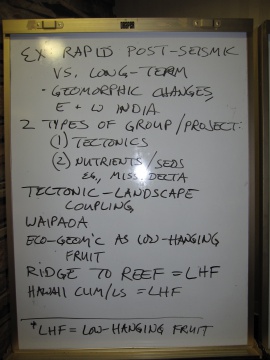 EX. RAPID POST-SEISMIC
VS. LONG-TERM
• GEOMORPHIC CHANGES,
E + W INDIA
2 TYPES OF GROUP/PROJECT:
(1) TECTONICS
(2) NUTRIENTS/SEDS
EG, MISS. DELTA
TECTONIC-LANDSCAPE
COUPLING
WAIPAOA
ECO-GEOM'C AS LOW-HANGING
FRUIT
RIDGE TO REEF = LHF
HAWAII CLIM/LS = LHF
*LHF = LOW-HANGING FRUIT